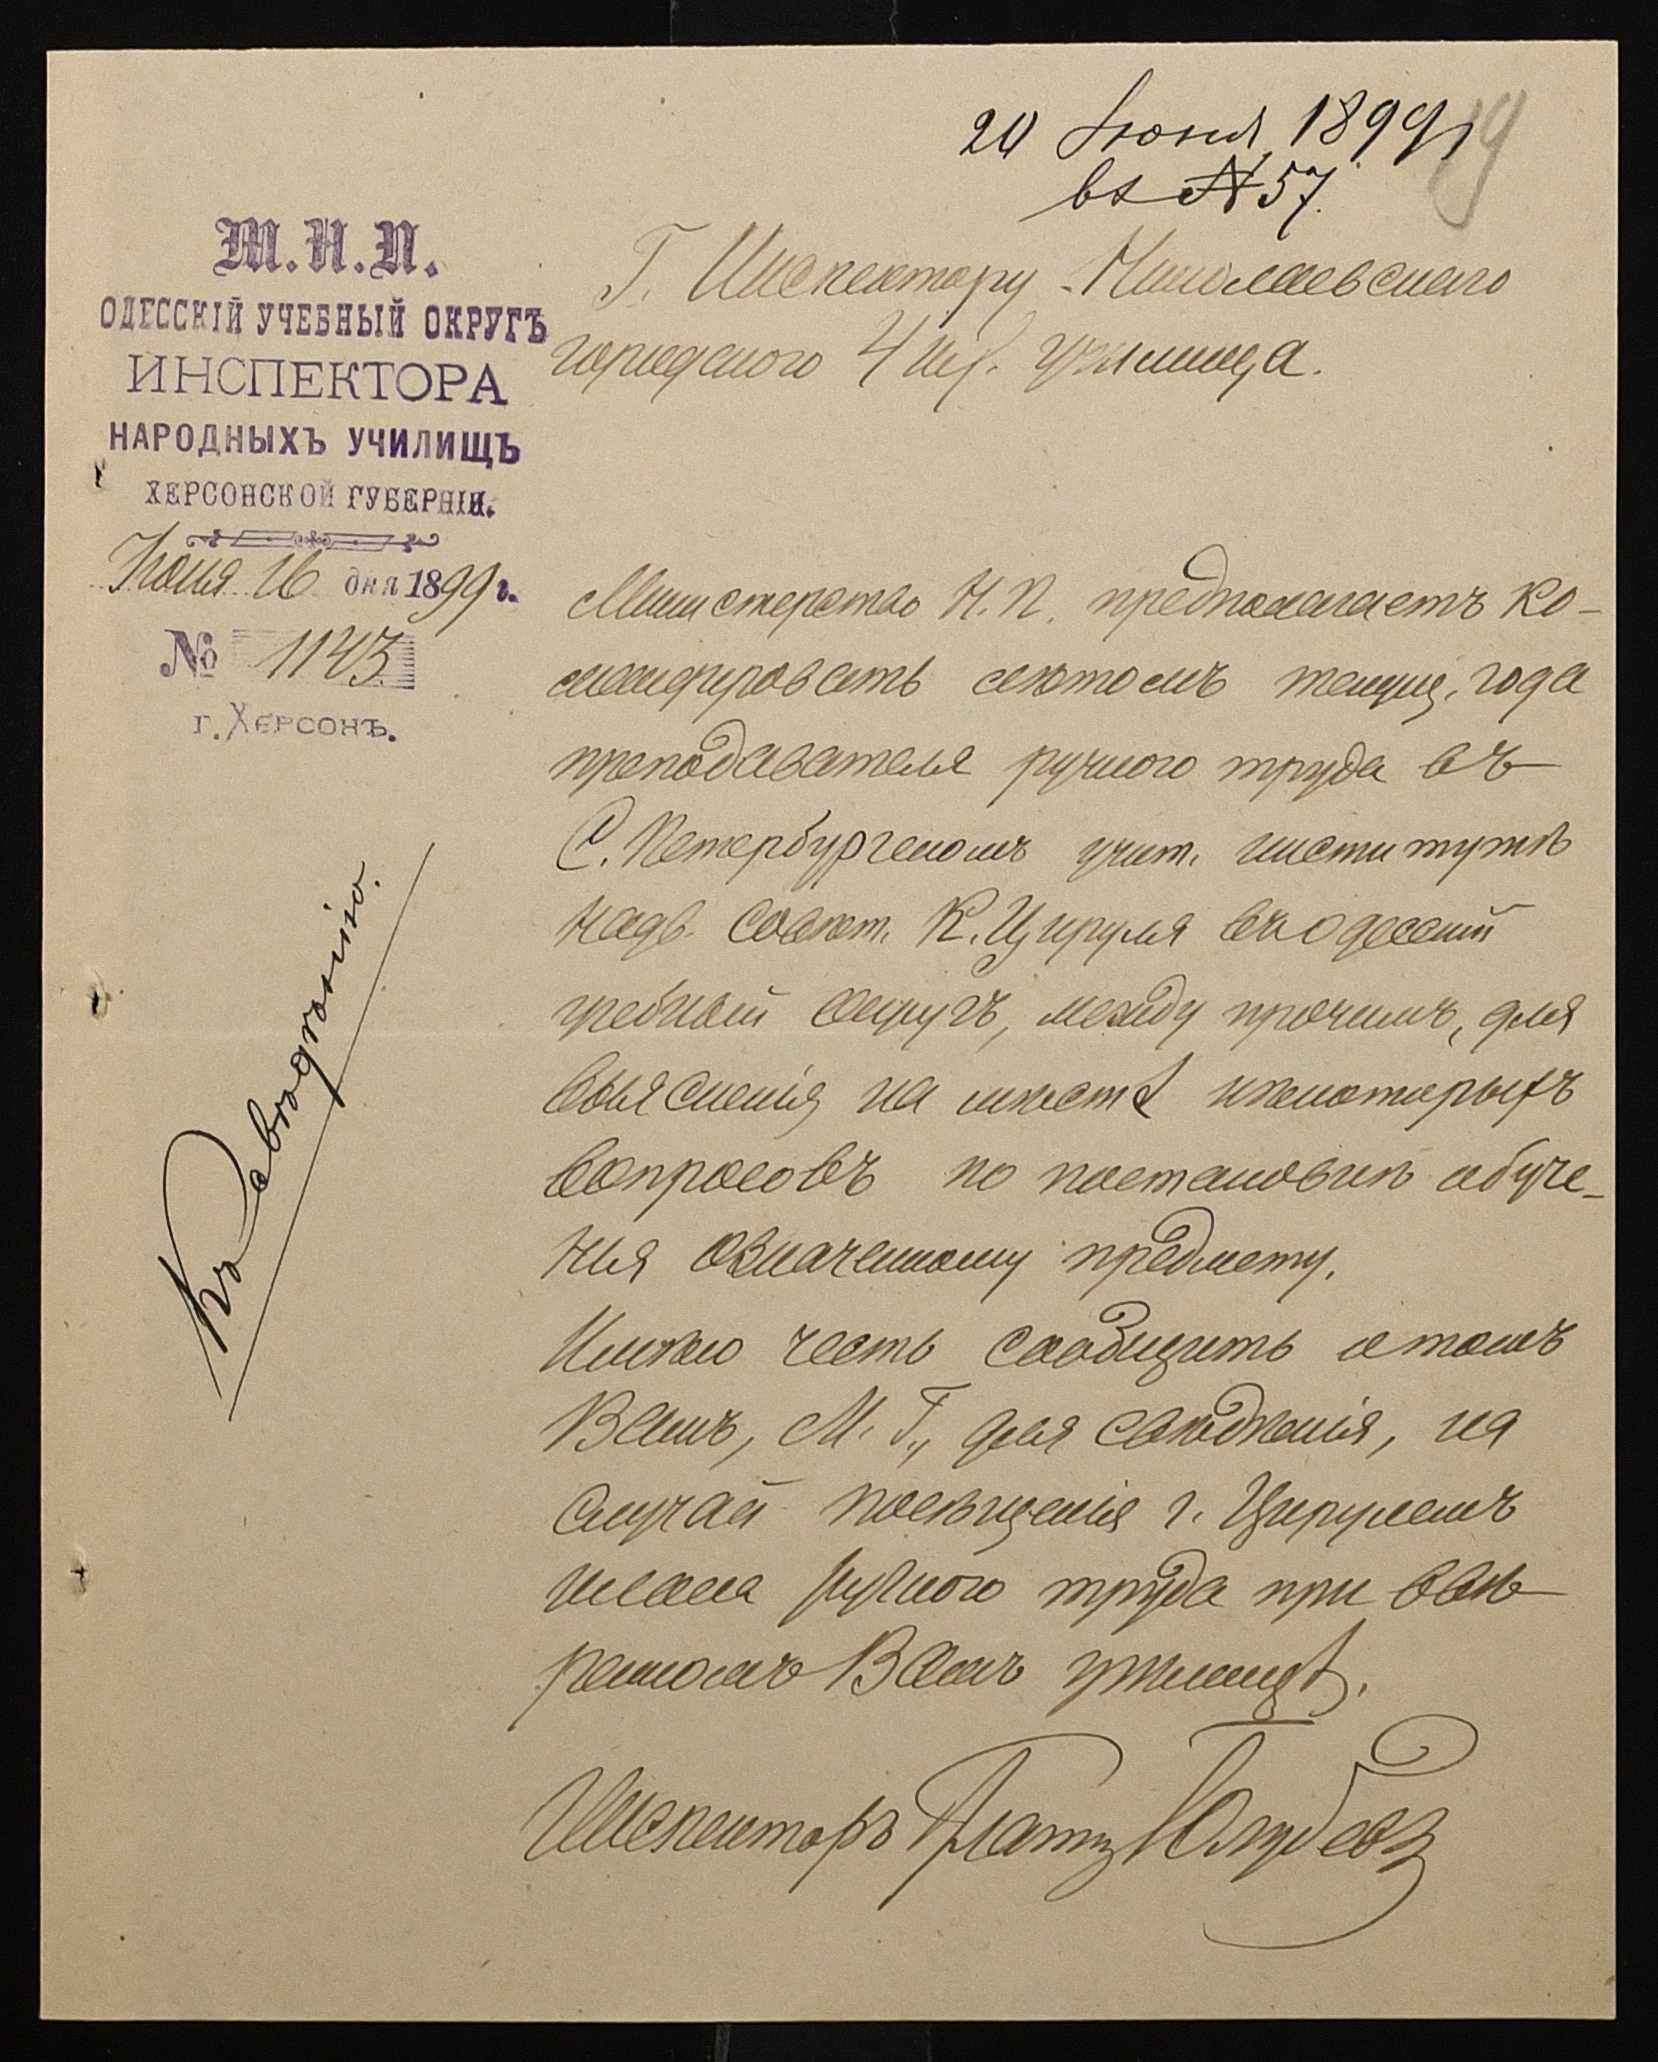 20 Іюня 1899 г
вх № 57.
19
М. Н. П.
ОДЕССКІЙ УЧЕБНЫЙ ОКРУГЪ
ИНСПЕКТОРА
НАРОДНЫХЪ УЧИЛИЩЪ
ХЕРСОНСКОЙ ГУБЕРНІИ.
Іюня 16 дня 1899 г.
№ 1143
г. Херсонъ.
Г. Инспектору Николаевскаго
городского 4 кл. училища.
Министерство Н. П. предполагаетъ ко-
мандировать лѣтомъ текущ. года
преподавателя ручного труда въ
С. Петербургскомъ учит. институтѣ
надв. совѣт. К. Цируля въ Одесскій
учебный округъ, между прочимъ, для
выясненія на мѣстѣ нѣкоторыхъ
вопросовъ по постановкѣ обуче-
нія означенному предмету.
Имѣю честь сообщить о томъ
Вамъ, М. Г., для свѣдѣнія, на
случай посѣщенія г. Цирулемъ
класса ручного труда при ввѣ-
ренномъ Вамъ училищѣ.
Инспекторъ
Къ свѣдѣнію.